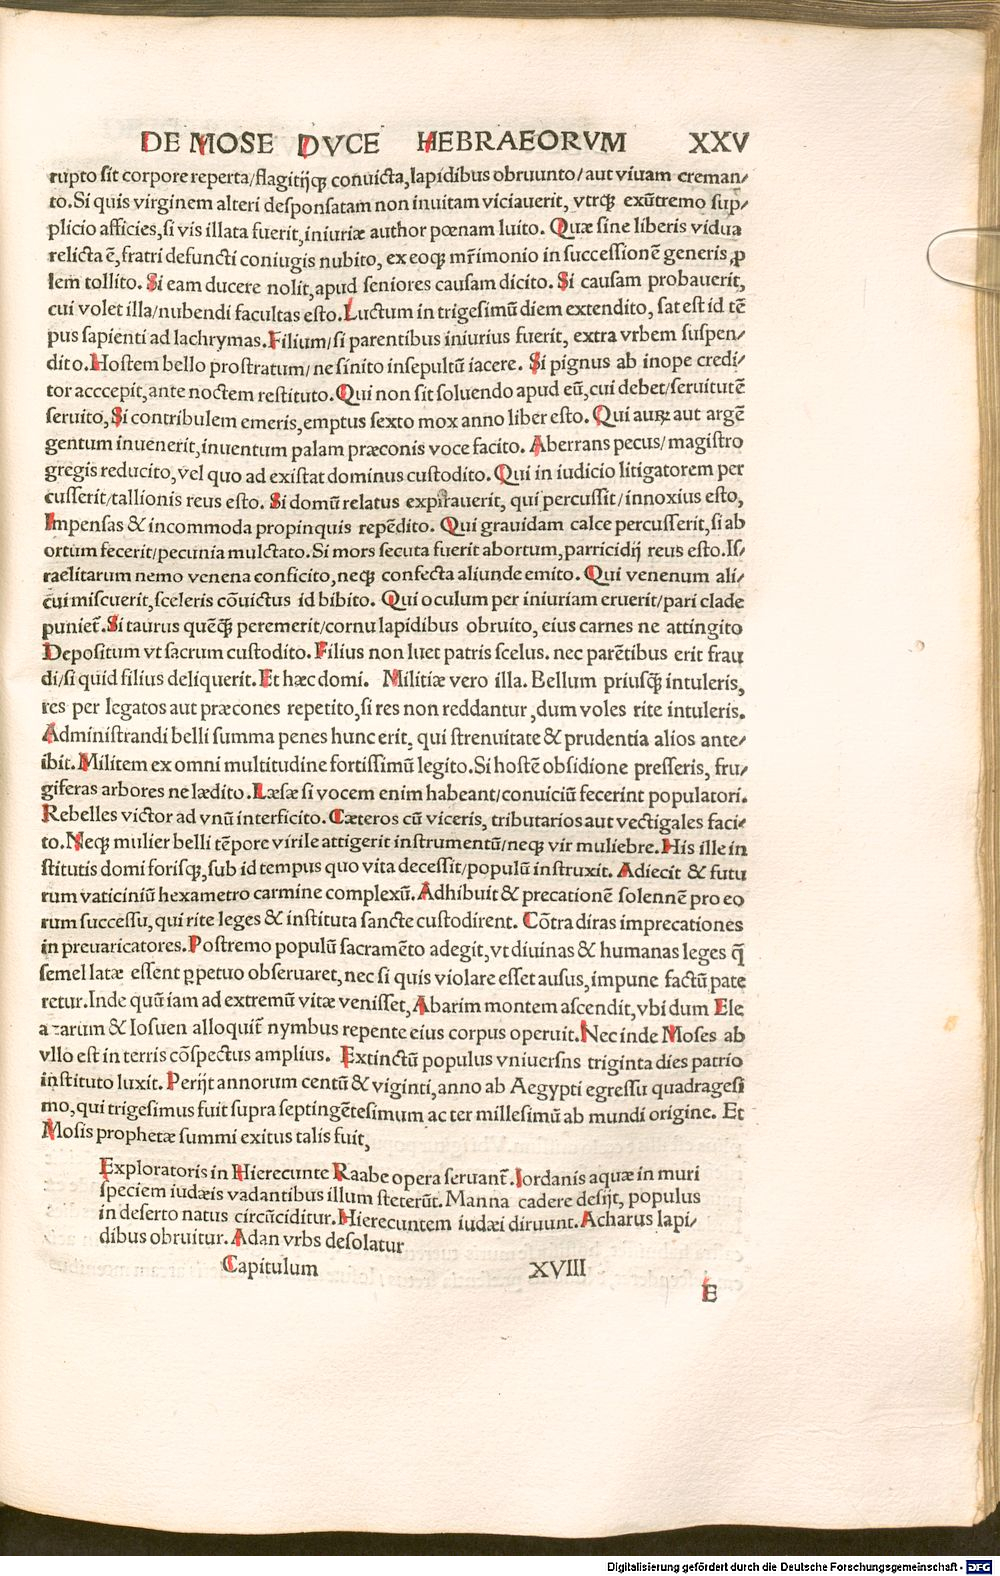 DE MOSE DVCE HEBRAEORVM XXV
rupto sit corpore reperta/flagitijqꝫ conuicta,lapidibus obruunto/aut viuam creman/
to.Si quis virginem alteri desponsatam non inuitam viciauerit, vtrqꝫ exũtremo sup/
plicio afficies,si vis illata fuerit,iniuriæ author pœnam luito. Quæ sine liberis vidua
relicta ẽ,fratri defuncti coniugis nubito, ex eoqꝫ mr̃imonio in successionẽ generis ꝓ
lem tollito. Si eam ducere nolit,apud seniores causam dicito. Si causam probauerit,
cui volet illa/nubendi facultas esto.Luctum in trigesimũ diem extendito, sat est id tẽ
pus sapienti ad lachrymas.Filium/si parentibus iniurius fuerit, extra vrbem suspen/
dito.Hostem bello prostratum/ne sinito insepultũ iacere. Si pignus ab inope credi/
tor acccepit,ante noctem restituto.Qui non sit soluendo apud eũ,cui debet/seruitutẽ
seruito,Si contribulem emeris,emptus sexto mox anno liber esto. Qui auꝝ aut argẽ
gentum inuenerit,inuentum palam præconis voce facito. Aberrans pecus/magistro
gregis reducito,vel quo ad existat dominus custodito. Qui in iudicio litigatorem per
cusserit/tallionis reus esto. Si domũ relatus expirauerit, qui percussit/innoxius esto,
Impensas & incommoda propinquis repẽdito. Qui grauidam calce percusserit,si ab
ortum fecerit/pecunia mulctato.Si mors secuta fuerit abortum,parricidij reus esto.Is/
raelitarum nemo venena conficito,neqꝫ confecta aliunde emito. Qui venenum ali/
cui miscuerit,sceleris cõuictus id bibito. Qui oculum per iniuriam eruerit/pari clade
puniet̃.Si taurus quẽqꝫ peremerit/cornu lapidibus obruito, eius carnes ne attingito
Depositum vt sacrum custodito.Filius non luet patris scelus. nec parẽtibus erit frau
di/si quid filius deliquerit.Et hæc domi. Militiæ vero illa. Bellum priusqꝫ intuleris,
res per legatos aut præcones repetito,si res non reddantur,dum voles rite intuleris.
Administrandi belli summa penes hunc erit, qui strenuitate & prudentia alios ante/
ibit.Militem ex omni multitudine fortissimũ legito.Si hostẽ obsidione presseris, fru/
giferas arbores ne lædito.Læsæ si vocem enim habeant/conuiciũ fecerint populatori.
Rebelles victor ad vnũ interficito.Cæteros cũ viceris, tributarios aut vectigales faci/
to.Neqꝫ mulier belli tẽpore virile attigerit instrumentũ/neqꝫ vir muliebre.His ille in
stitutis domi forisqꝫ,sub id tempus quo vita decessit/populũ instruxit. Adiecit & futu
rum vaticiniũ hexametro carmine complexũ.Adhibuit & precationẽ solennẽ pro eo
rum successu,qui rite leges & instituta sancte custodirent. Cõtra diras imprecationes
in preuaricatores.Postremo populũ sacramẽto adegit,vt diuinas & humanas leges q̃
semel latæ essent ꝑpetuo obseruaret,nec si quis violare esset ausus,impune factũ pate
retur.Inde quũ iam ad extremũ vitæ venisset,Abarim montem ascendit,vbi dum Ele
azarum & Iosuen alloquit̃ nymbus repente eius corpus operuit.Nec inde Moses ab
vllo est in terris cõspectus amplius. Extinctũ populus vniuersns triginta dies patrio
instituto luxit. Perijt annorum centũ & viginti,anno ab Aegypti egressu quadragesi
mo,qui trigesimus fuit supra septingẽtesimum ac ter millesimũ ab mundi origine. Et
Mosis prophetæ summi exitus talis fuit,
Exploratoris in Hierecunte Raabe opera seruant̃.Iordanis aquæ in muri
speciem iudæis vadantibus illum steterũt. Manna cadere desijt, populus
in deserto natus circũciditur.Hierecuntem iudæi diruunt.Acharus lapi/
dibus obruitur.Adan vrbs desolatur
Capitulum XVIII
E
Digitalisierung gefördert durch die Deutsche Forschungsgemeinschaft - DFG